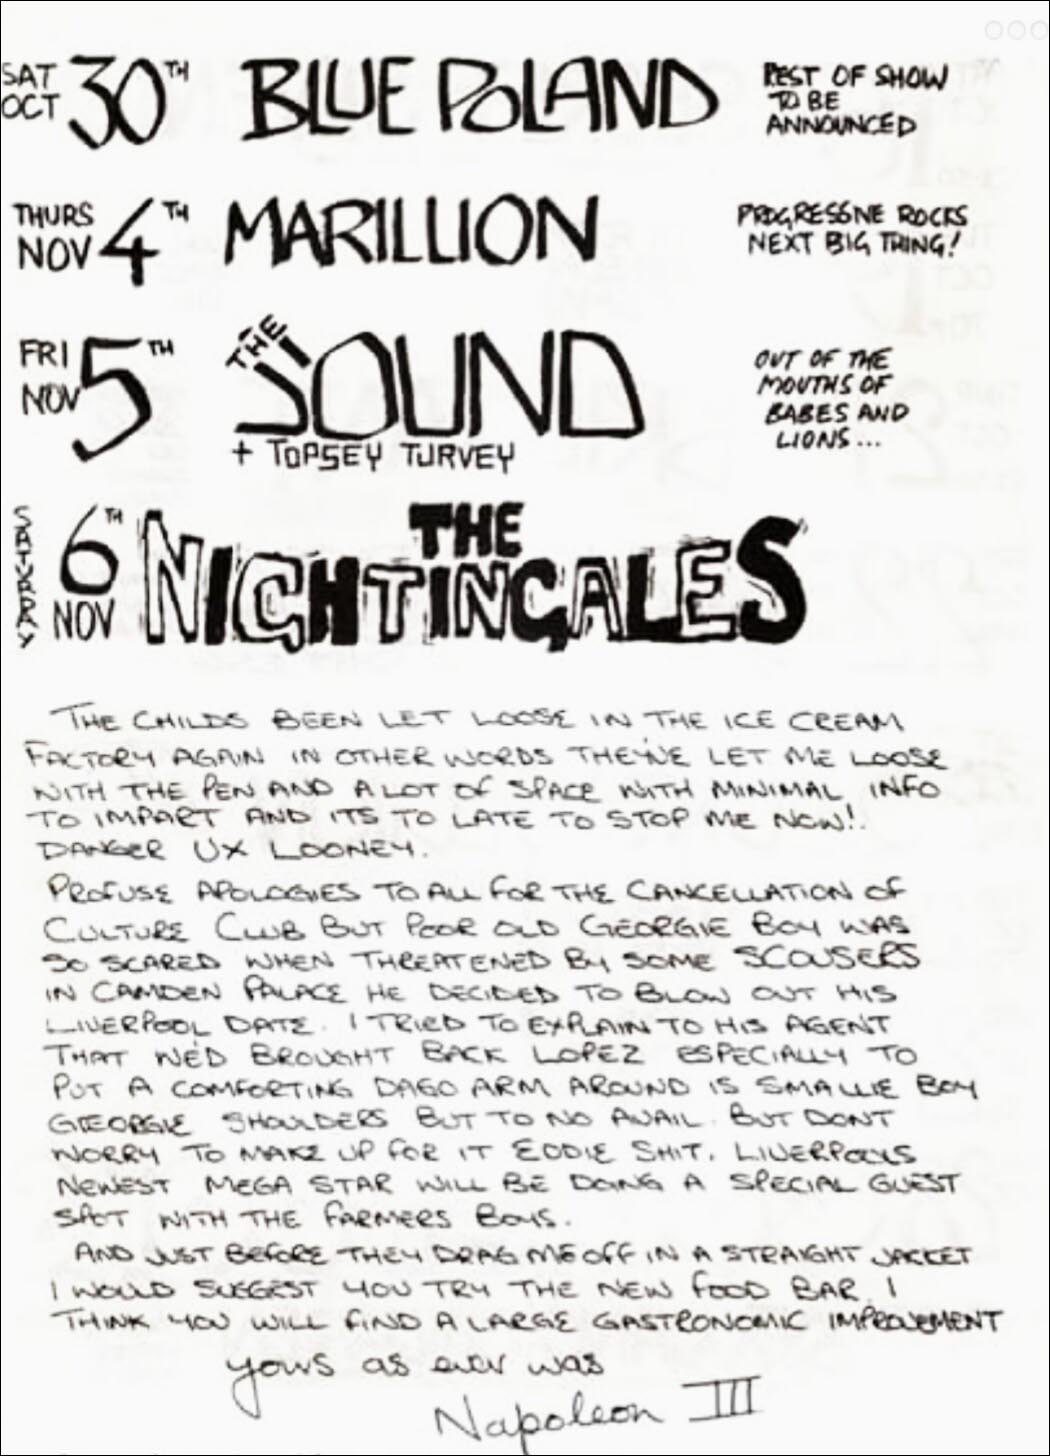 SAT OCT 30TH BLUE POLAND REST OF SHOW TO BE ANNOUNCED
THURS NOV 4TH MARILLION PROGRESSIVE ROCKS NEXT BIG THING!
FRI NOV 5TH THE SOUND OUT OF THE MOUTHS OF BABES AND LIONS...
+ TOPSEY TURVEY
SATURDAY 6TH NOV THE NIGHTINGALES
THE CHILDS BEEN LET LOOSE IN THE ICE CREAM
FACTORY AGAIN IN OTHER WORDS THEY'VE LET ME LOOSE
WITH THE PEN AND A LOT OF SPACE WITH MINIMAL INFO
TO IMPART AND ITS TO LATE TO STOP ME NOW!.
DANGER UX LOONEY.
PROFUSE APOLOGIES TO ALL FOR THE CANCELLATION OF
CULTURE CLUB BUT POOR OLD GEORGIE BOY WAS
SO SCARED WHEN THREATENED BY SOME SCOUSERS
IN CAMDEN PALACE HE DECIDED TO BLOW OUT HIS
LIVERPOOL DATE. I TRIED TO EXPLAIN TO HIS AGENT
THAT WE'D BROUGHT BACK LOPEZ ESPECIALLY TO
PUT A COMFORTING DAGO ARM AROUND IS SMALLIE BOY
GEORGIE SHOULDERS BUT TO NO AVAIL. BUT DONT
WORRY TO MAKE UP FOR IT EDDIE SHIT. LIVERPOOLS
NEWEST MEGA STAR WILL BE DOING A SPECIAL GUEST
SPOT WITH THE FARMERS BOYS.
AND JUST BEFORE THEY DRAG ME OFF IN A STRAIGHT JACKET
I WOULD SUGGEST YOU TRY THE NEW FOOD BAR. I
THINK YOU WILL FIND A LARGE GASTRONOMIC IMPROVEMENT
yours as ever was
Napoleon III